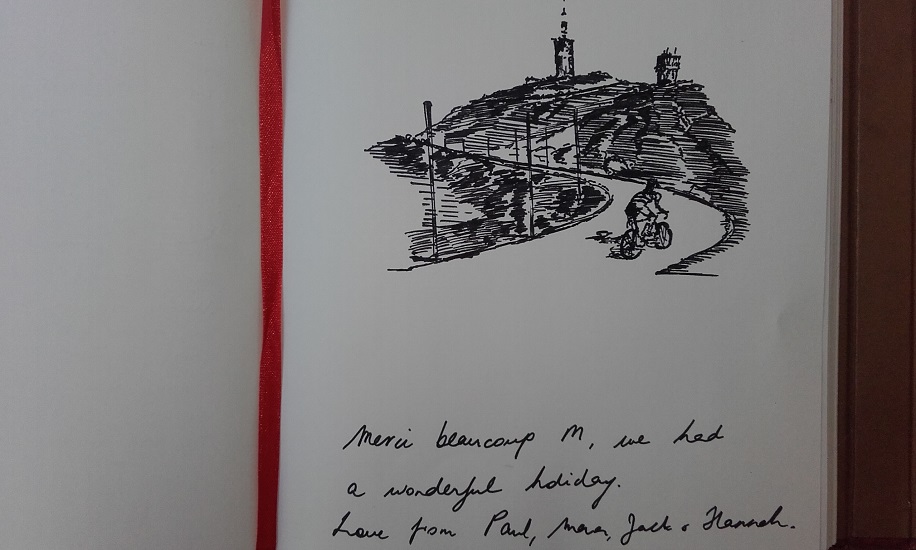 Merci beaucoup M, we had
a wonderful holiday.
Love from Paul, Jack & Hannah.